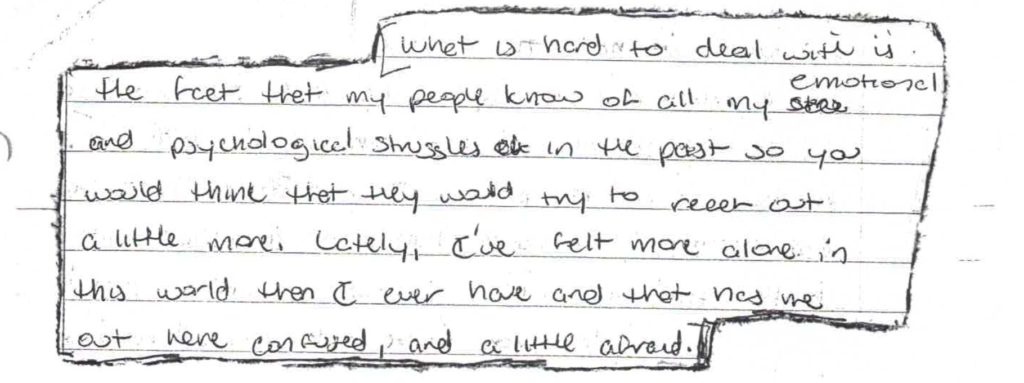 What is hard to deal with is
the fact that my people know of all my emotional
and psychological struggles in the past so you
would think that they would try to reach out
a little more. Lately, I've felt more alone in
this world then I ever have and that has me
out here confused, and a little afraid.